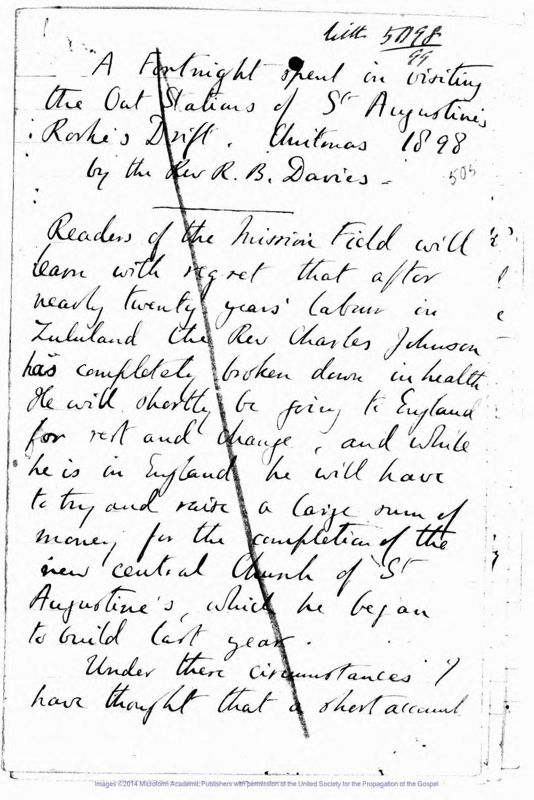 with 5098/99
A Fortnight spent in visiting
the Out Stations of St Augustine's
Rorke's Drift. Christmas 1898
by the Rev R. B. Davies -
505
Readers of the Mission Field will
learn with regret that after
nearly twenty years' labour in
Zululand the Rev Charles Johnson
has completely broken down in health
He will shortly be going to England
for rest and change, and while
he is in England he will have
to try and raise a large sum of
money for the completion of the
new central Church of St
Augustine's, which he began
to build last year.
Under these circumstances I
have thought that a short account
Images ©2014 Microform Academic Publishers with permission of the United Society for the Propagation of the Gospel